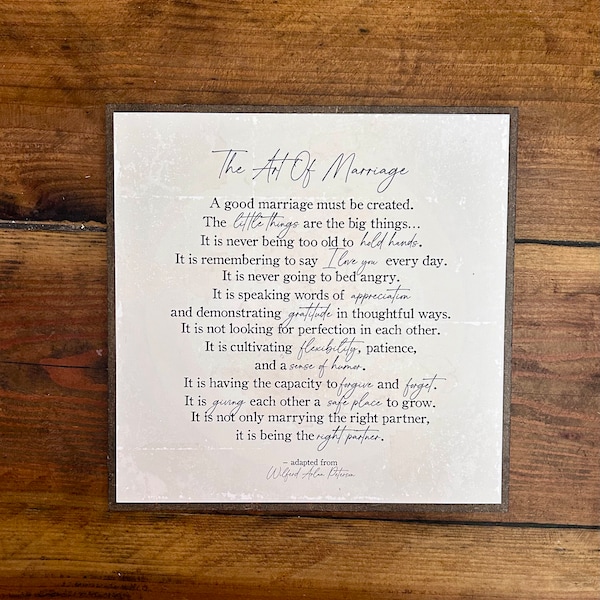 The Art Of Marriage
A good marriage must be created.
The little things are the big things...
It is never being too old to hold hands.
It is remembering to say I love you every day.
It is never going to bed angry.
It is speaking words of appreciation
and demonstrating gratitude in thoughtful ways.
It is not looking for perfection in each other.
It is cultivating flexibility, patience,
and a sense of humor.
It is having the capacity to forgive and forget.
It is giving each other a safe place to grow.
It is not only marrying the right partner,
it is being the right partner.
~ adapted from
Wilferd Arlan Peterson